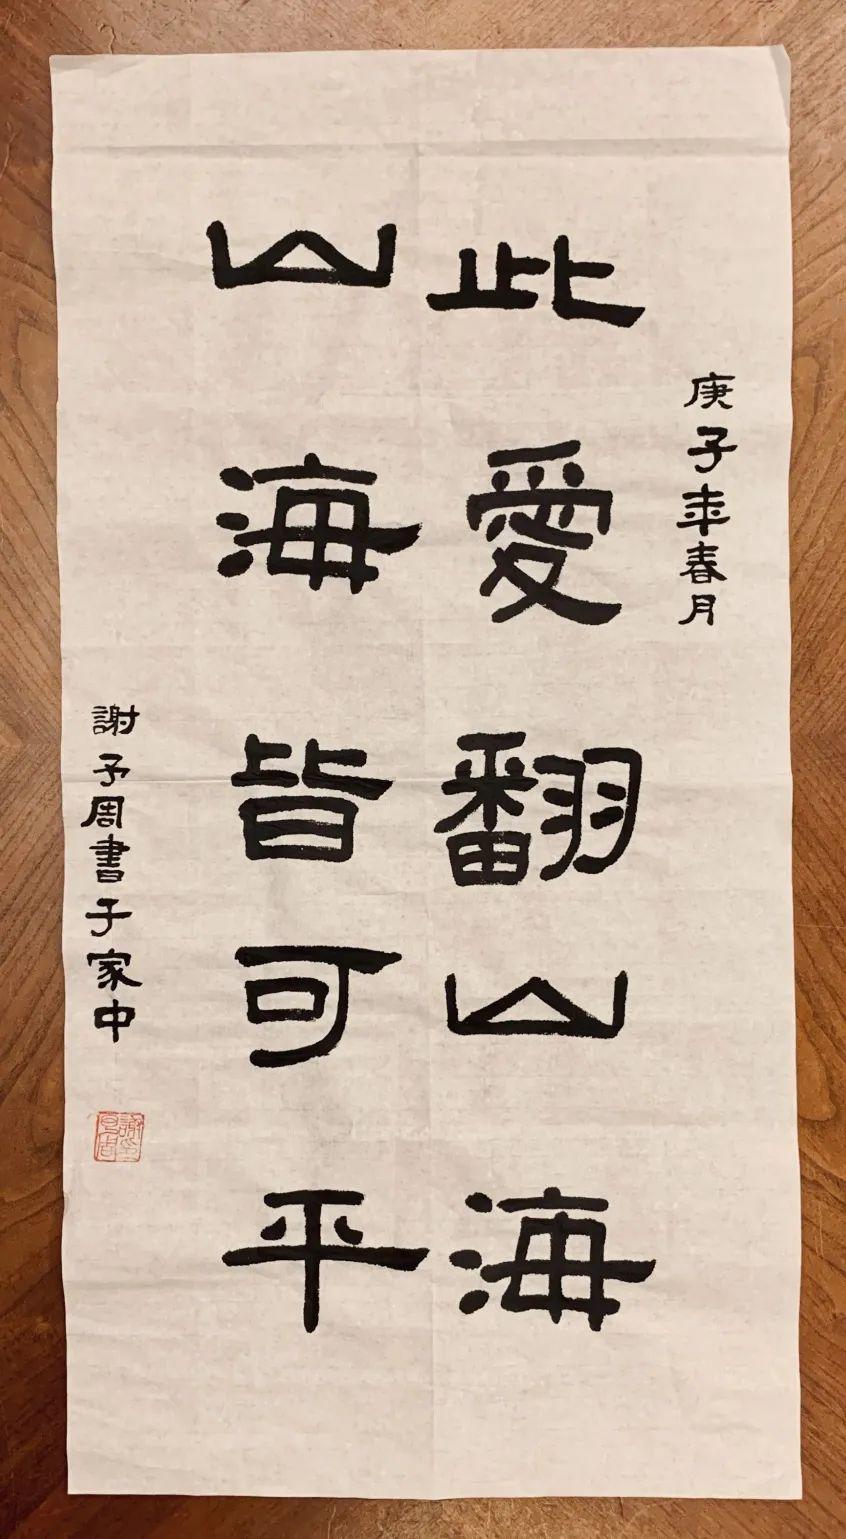 庚子年春月
此愛翻山海
山海皆可平
謝予周書于家中